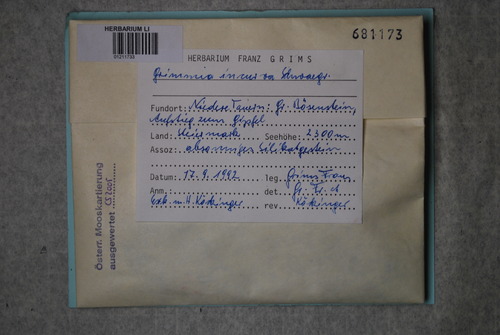 HERBARIUM LI
681173
HERBARIUM FRANZ GRIMS
Grimmia incurva Schwaegr.
Fundort: Niedere Tauern: Gr. Bösenstein,
Aufstieg zum Gipfel
Land: Steiermark Seehöhe: 2300m
Assoz: Silikatgestein
Datum: 17.9.1992 leg. Grims Franz
Anm.: det.
Exk. m. H. Köckinger rev. Köckinger
Österr. Mooskartierung
ausgewertet